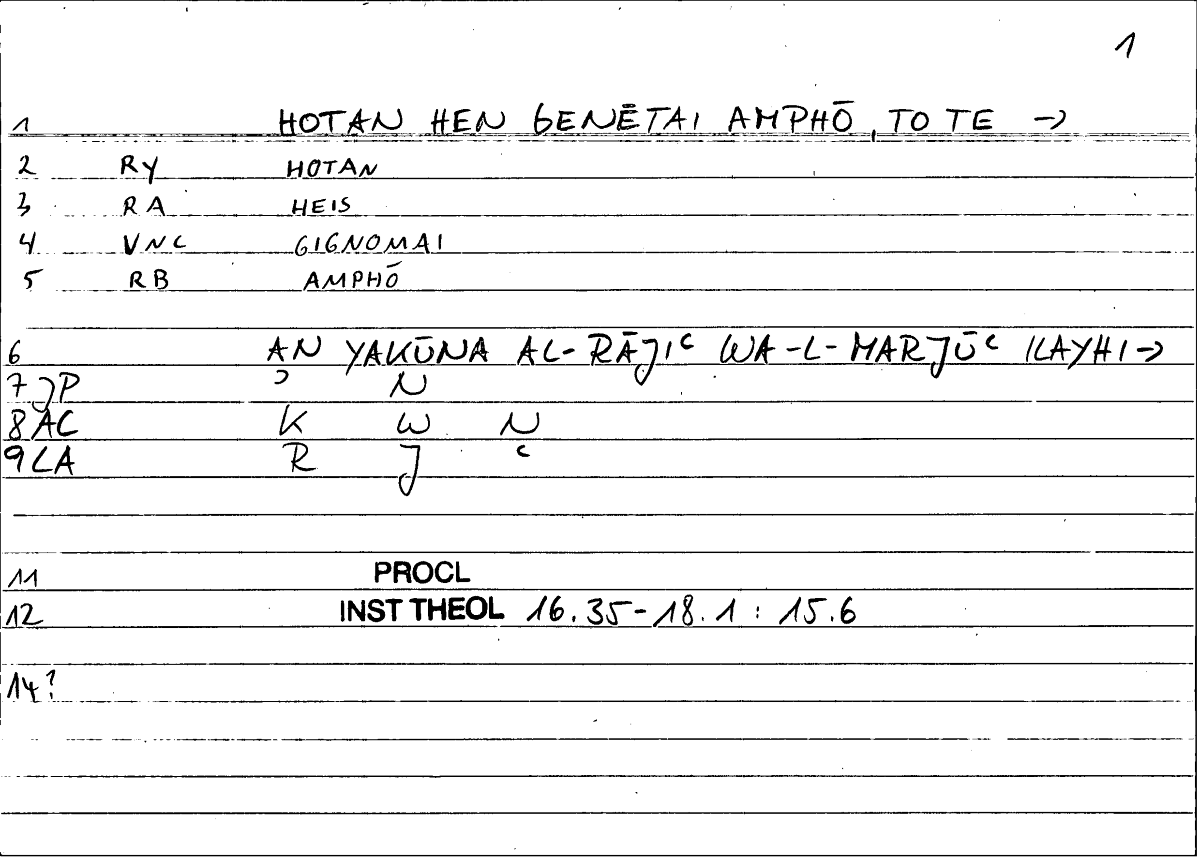 1
1 HOTAN HEN GENĒTAI AMPHŌ, TO TE →
2 RY HOTAN
3 RA HEIS
4 VNC GIGNOMAI
5 RB AMPHŌ
6 AN YAKŪNA AL-RĀJIᶜ WA-L-MARJŪᶜ ILAYHI →
7 JP ʾ N
8 AC K W N
9 LA R J ᶜ
11 PROCL
12 INST THEOL 16.35-18.1 : 15.6
14?